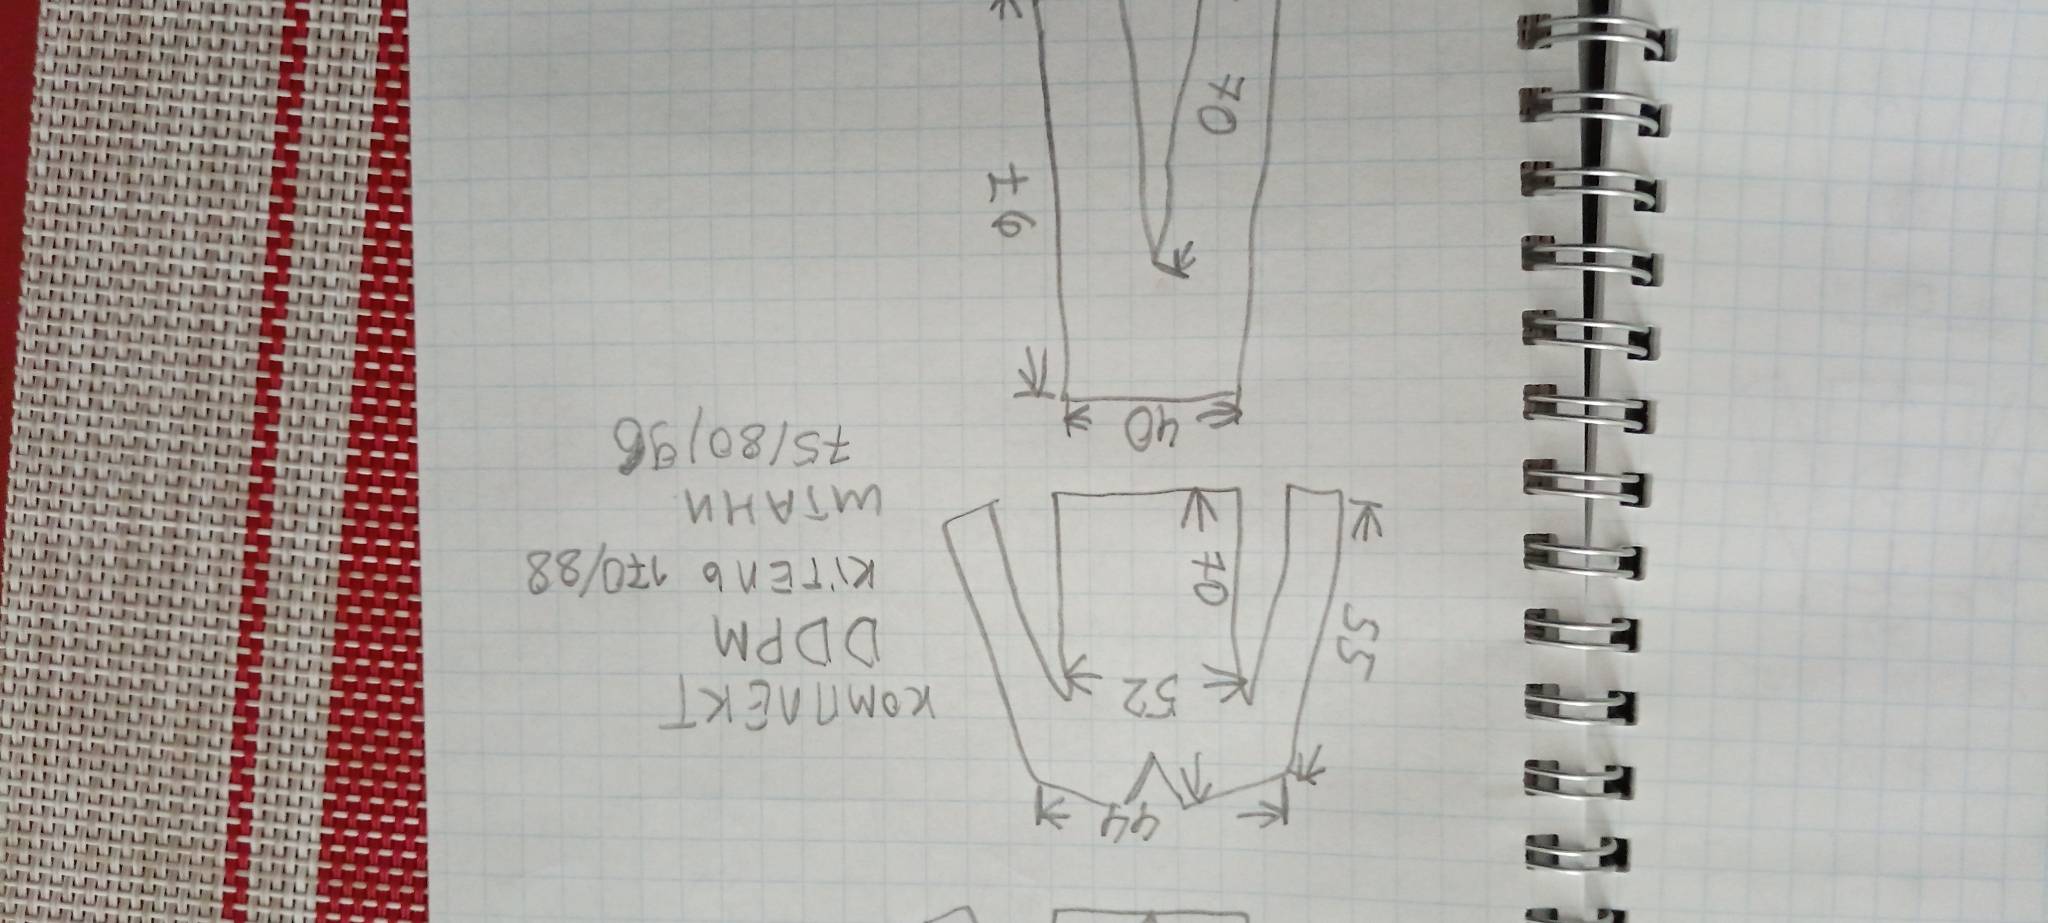 44
КОМПЛЕКТ
DDPM
КІТЕЛЬ 170/88
ШТАНИ
75/80/96
52
55
70
40
97
70